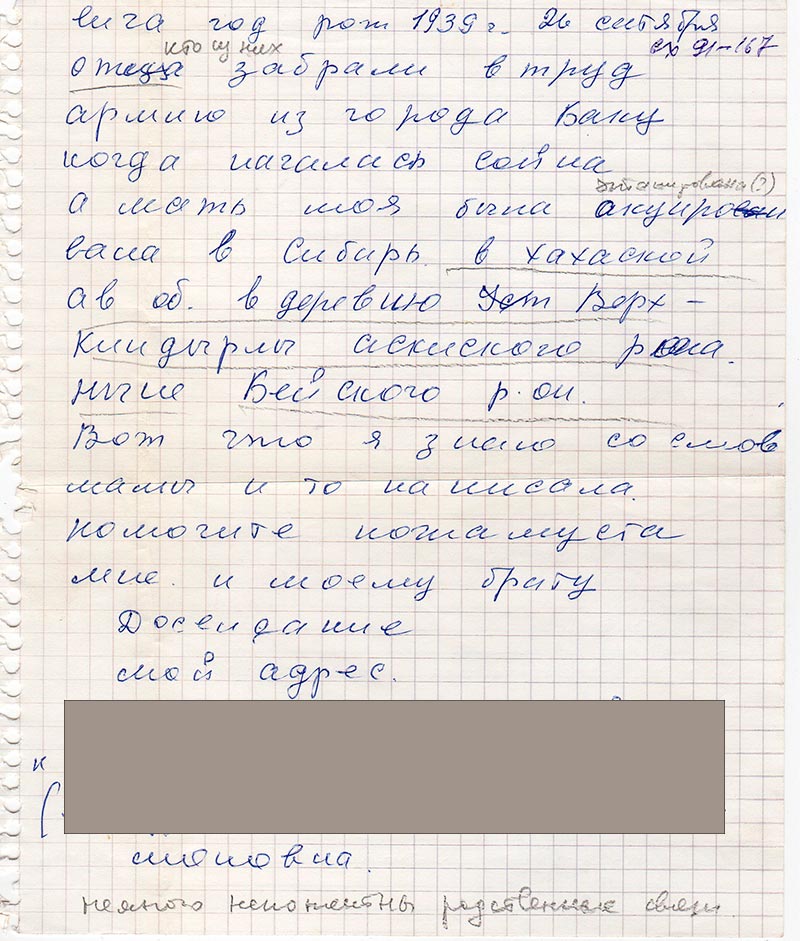 вича год рож 1939 г. 26 сентября
кто из них
сх 91-167
отца забрали в труд
армию из города Баку
когда началась война
эвакуирована (?)
а мать моя была акуирован
вана в Сибирь в хахаской
ав об. в деревню Уст Верх -
Киндырлы аскиского р она.
ныне Бейского р. он.
Вот что я знаю со слов
мамы и то написала.
помогите пожалуста
мне. и моему брату
Досвидание
мой адрес.
к
(
немного непонятны родственные связи